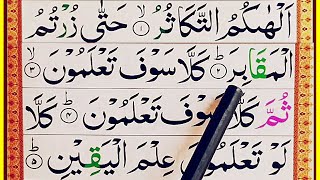 اَلْهٰىكُمُ التَّكَاثُرُ ۙ﴿۱﴾ حَتّٰى زُرْتُمُ
الْمَقَابِرَ ؕ﴿۲﴾ كَلَّا سَوْفَ تَعْلَمُوْنَ ۙ﴿۳﴾
ثُمَّ كَلَّا سَوْفَ تَعْلَمُوْنَ ؕ﴿۴﴾ كَلَّا
لَوْ تَعْلَمُوْنَ عِلْمَ الْيَقِيْنِ ؕ﴿۵﴾